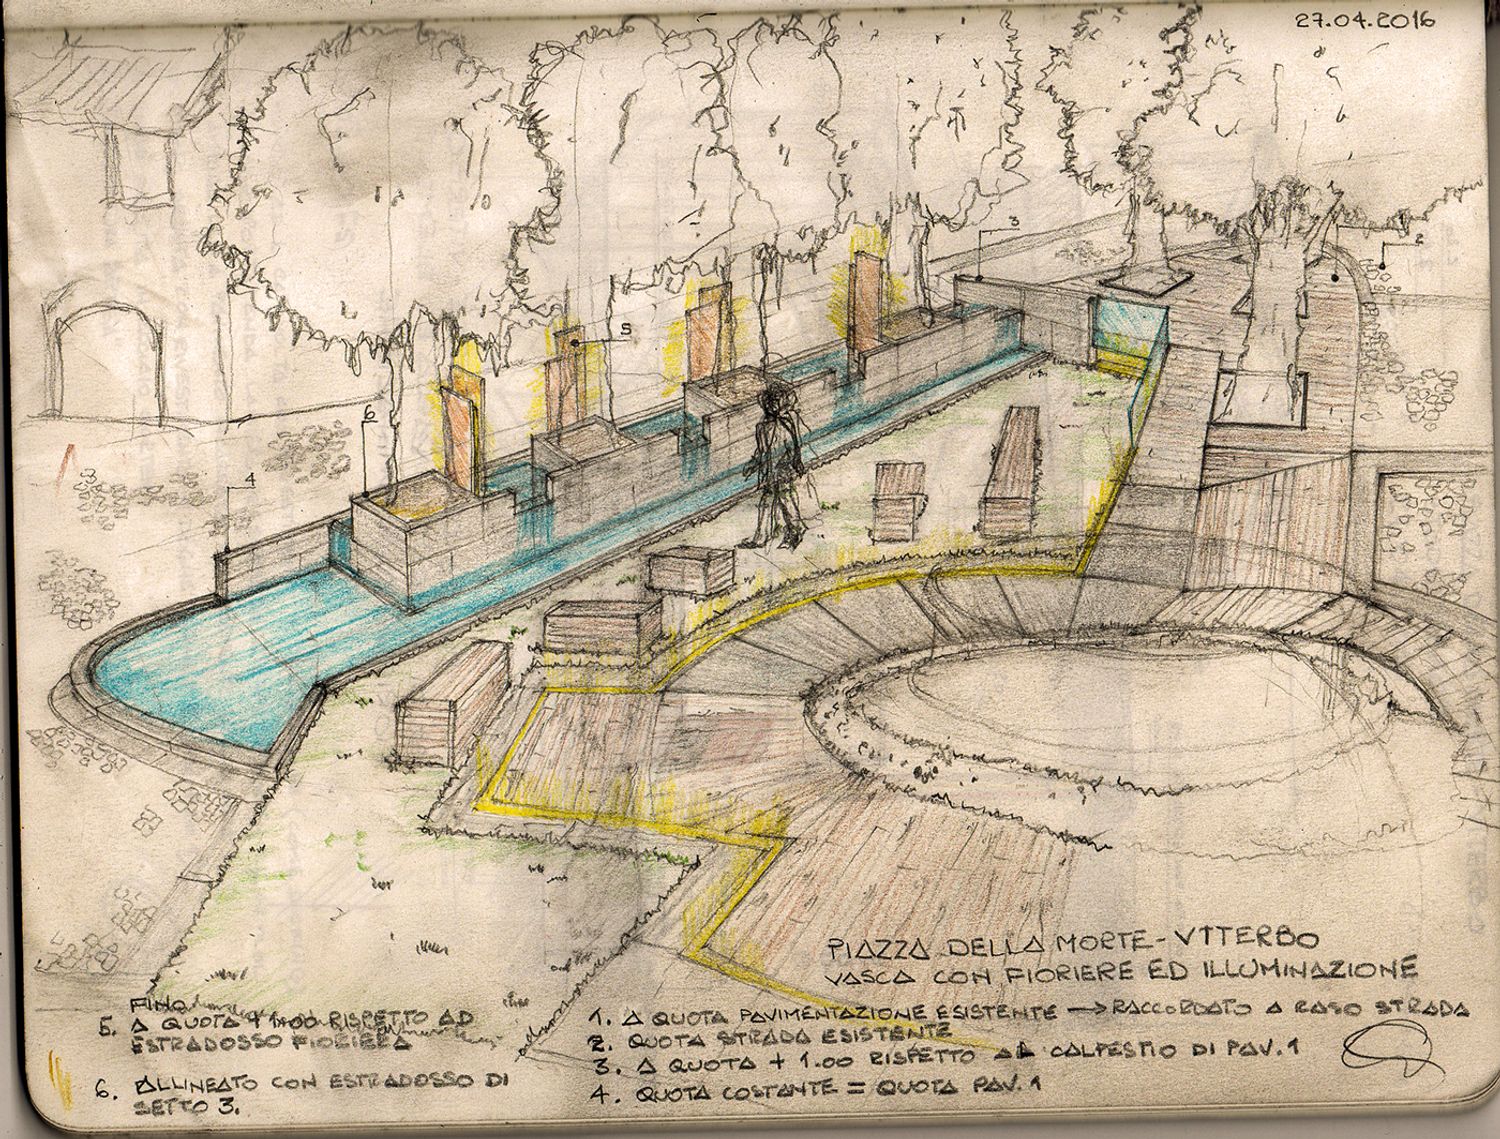 27.04.2016
3
2
5
6
4
PIAZZA DELLA MORTE - VITERBO
VASCA CON FIORIERE ED ILLUMINAZIONE
FINO
5. A QUOTA +1.00 RISPETTO AD
ESTRADOSSO FIORIERA
6. ALLINEATO CON ESTRADOSSO DI
SETTO 3.
1. A QUOTA PAVIMENTAZIONE ESISTENTE → RACCORDATO A RASO STRADA
2. QUOTA STRADA ESISTENTE
3. A QUOTA + 1.00 RISPETTO AL CALPESTIO DI PAV. 1
4. QUOTA COSTANTE = QUOTA PAV. 1